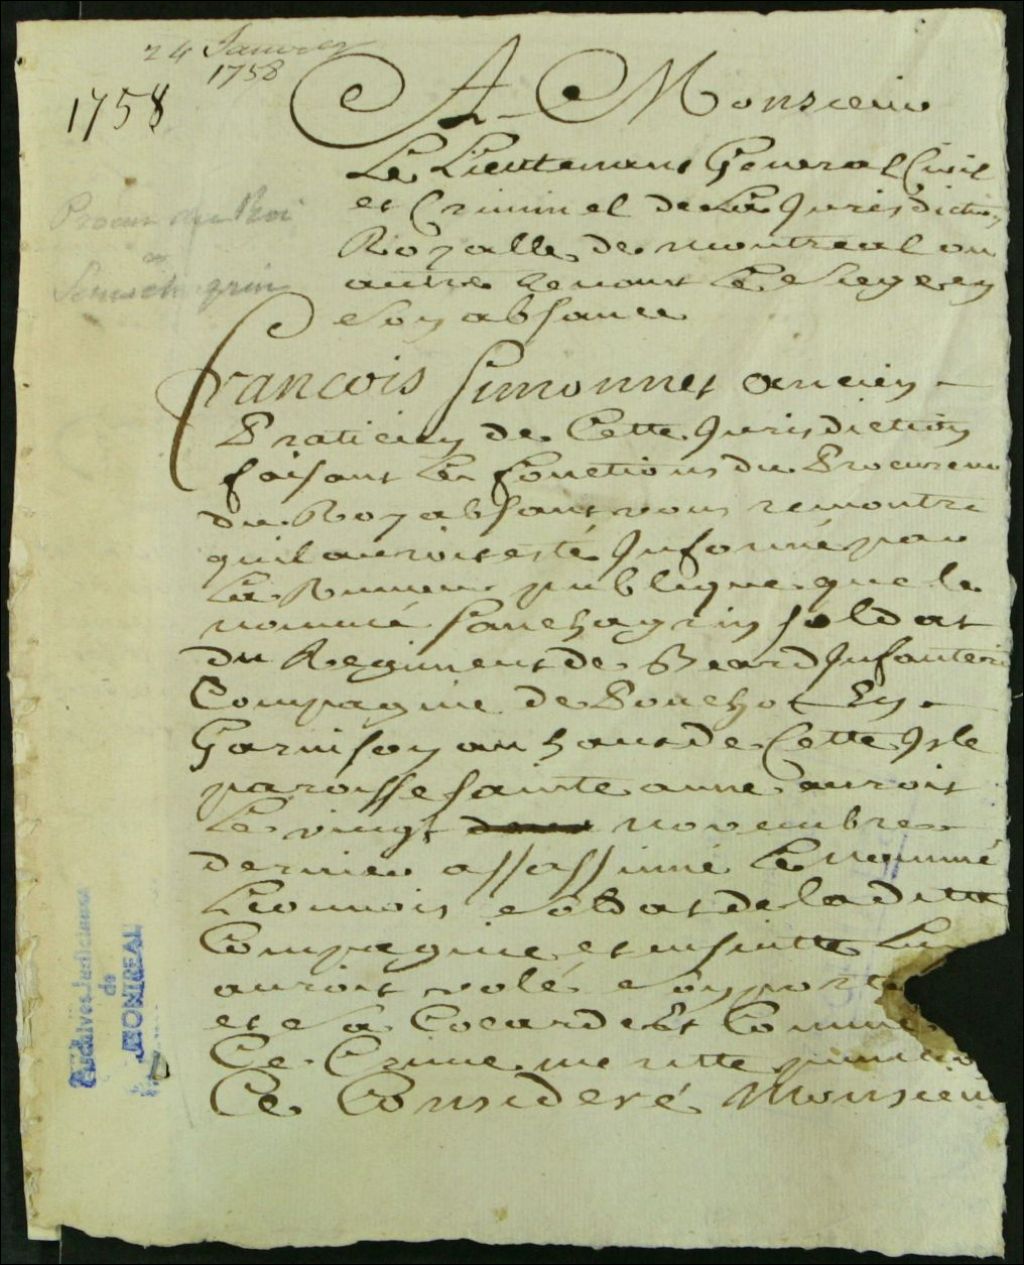 24 Janvier
1758
1758
A Monsieur
Le Lieutenant General Civil
et Criminel de La Jurisdiction
Royalle de Montreal ou
autre tenant Le Siege en
Son absance
Procur du Roi
vs
Sanschagrin
francois Simonnet ancien
Praticien de Cette Jurisdiction
faisant Les fonctions du Procureur
du Roy absant vous remontre
quil auroit esté Informé par
La Rumeur publique que le
nommé Sanchagrin soldat
du Regiment de Beard Infanterie
Compagnie de Pouchot En
Garnison au haut de Cette Isle
paroisse Sainte anne auroit
Le vingt novembre
dernier assassinné Le nommé
Lionnois Soldat de la ditte
Compagnie et ensuitte Lui
auroit volé Son porte
et Sa Cocarde Et Comme
Ce Crime meritte punition
Ce Consideré Monsieur
Archives Judiciaires
de
MONTREAL